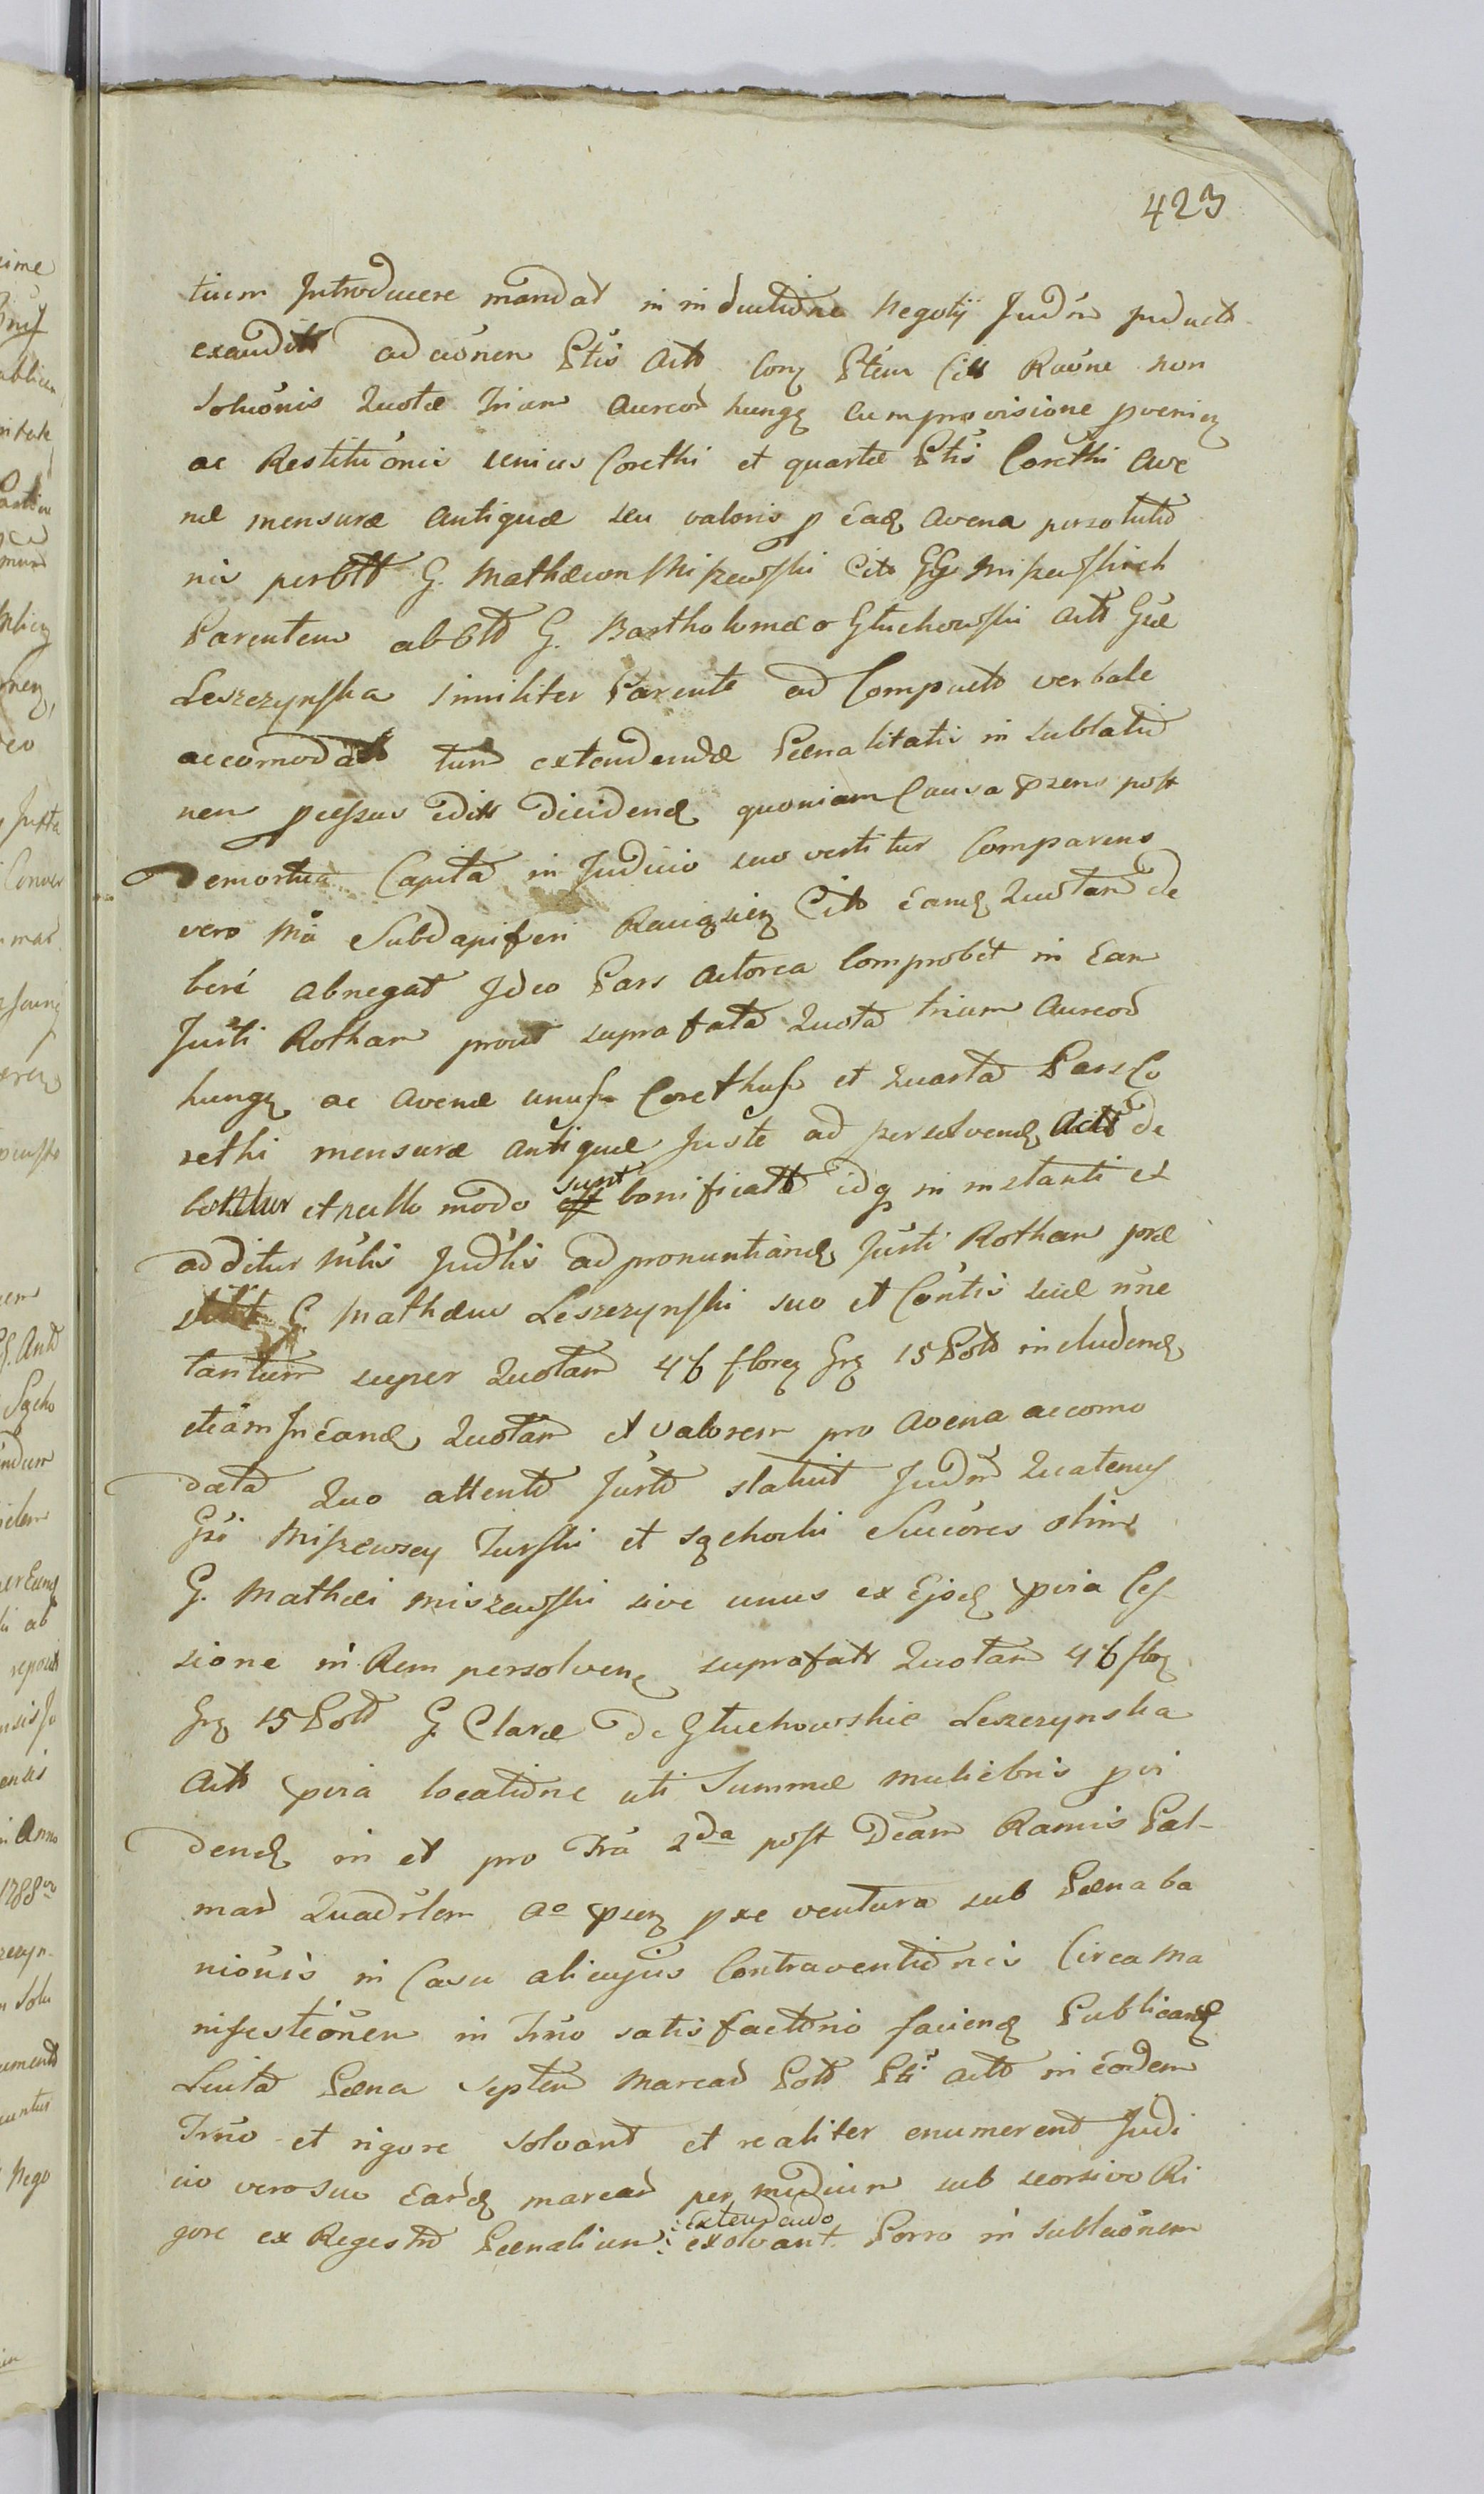 423
tium Introducere mandat in inductione Negotij Judm productis
exauditis ad aönen Ptis Actt Conq Ptem Citt Raõne non
Soluõnis Quotæ Trium Aureor hungq cum provisione proveniq
ac Restituõnis unius Corethi et quartæ Ptis Corethi Ave
næ mensuræ Antiquæ seu valoris p eadq Avena persolutio
nis per Ptt G. Mathæum Miszewski Citt GG Miszewskich
Parentem ab Ptt G. Bartholomæo Głuchowski Actt Gsæ
Leszczynska similiter Parente ad Compactt verbale
accomodatt tum extendendæ Pænalitatis in sublatio
nem pcessus editt dicidendq quoniam Causa præsens post
Demortua Capita in Judicio suo vertitur Comparens
vero Mă Subdapiferi Raciqzieq Citt eamq Quotam de
beri abnegat Ideo Pars Actorea Comprobet in Eam
Jurti Rotham prout suprafata Quota trium Aureor
hungq ac Avenæ unus Corethus et Quarta Pars Co
rethi mensuræ Antiquæ Juste ad persolvendq Actt de
betur et nullo modo sunt bonificatt idq in instanti et
additur Mtris Judtis ad pronuntiandq Jurti Rotham præ
stitit G. Mathæus Leszczynski suo et Contis suæ nõne
tantum super Quotam 46 floreq Grq 15 Poltt includendq
etiam In eandq Quotam et valorem pro Avena accomo
data Quo attento Jurtto statuit Judm Quatenus
Gsi Miszewscy Turski et Sqchocki Succõres olim
G. Mathæi Miszewski sive unus ex Ejodq pvia Ces
sione in Rem persolvenq suprafatt Quotam 46 floq
Grq 15 Poltt G. Claræ De Głuchowskie Leszczynska
Actt pvia locatione uti Summæ muliebris pvi
dendq in et pro Fra 2da post Dcam Ramis Pal-
mar Quadrlem Ao præsenq pxe ventura sub Pæna ba
niõnis in Casu alicujus Contraventionis Circa Ma
nifestiõnem in Trno satisfactorio faciendq Publicandq
Luita Pæna Septem Marcar Poltt Pti Actt in eodem
Trno et rigore solvant et realiter enumerent Judi
cio vero suo Eardq marcar per medium sub seorsivo Ri
gore ex Regestro Pænalium extendendo exolvant Porro in sublaõnem